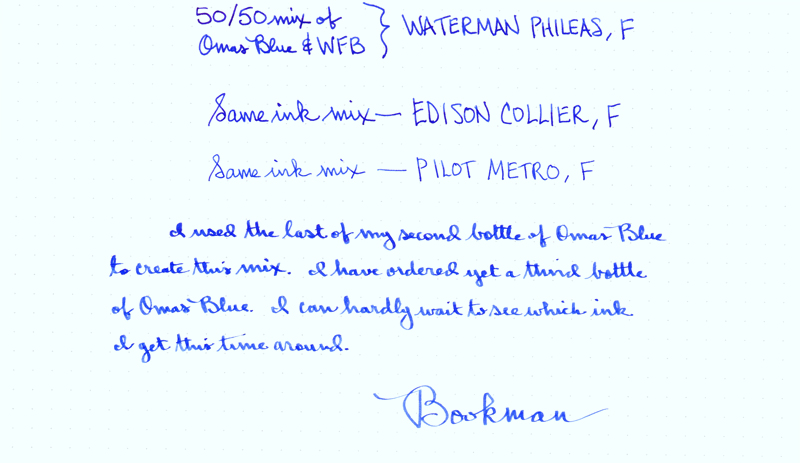 50/50 mix of
Omas Blue & WFB } WATERMAN PHILEAS, F
Same ink mix — EDISON COLLIER, F
Same ink mix — PILOT METRO, F
I used the last of my second bottle of Omas Blue
to create this mix. I have ordered yet a third bottle
of Omas Blue. I can hardly wait to see which ink
I get this time around.
Bookman